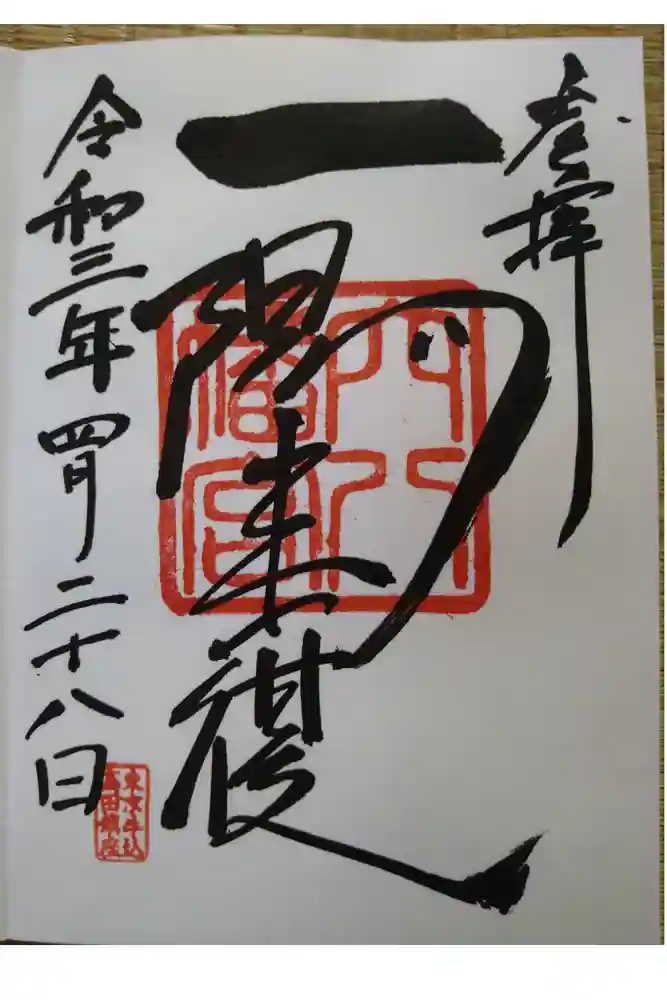 奉拝
一陽来復
穴八
幡宮
令和三年四月二十八日
東京牛込
高田鎮座